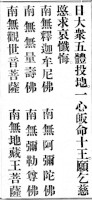 日大衆五體投地一心皈命十王願乞慈
愍求哀懺悔
南無釋迦牟尼佛 南無阿彌陀佛
南無無量壽佛 南無彌勒尊佛
南無觀世音菩薩 南無地藏王菩薩